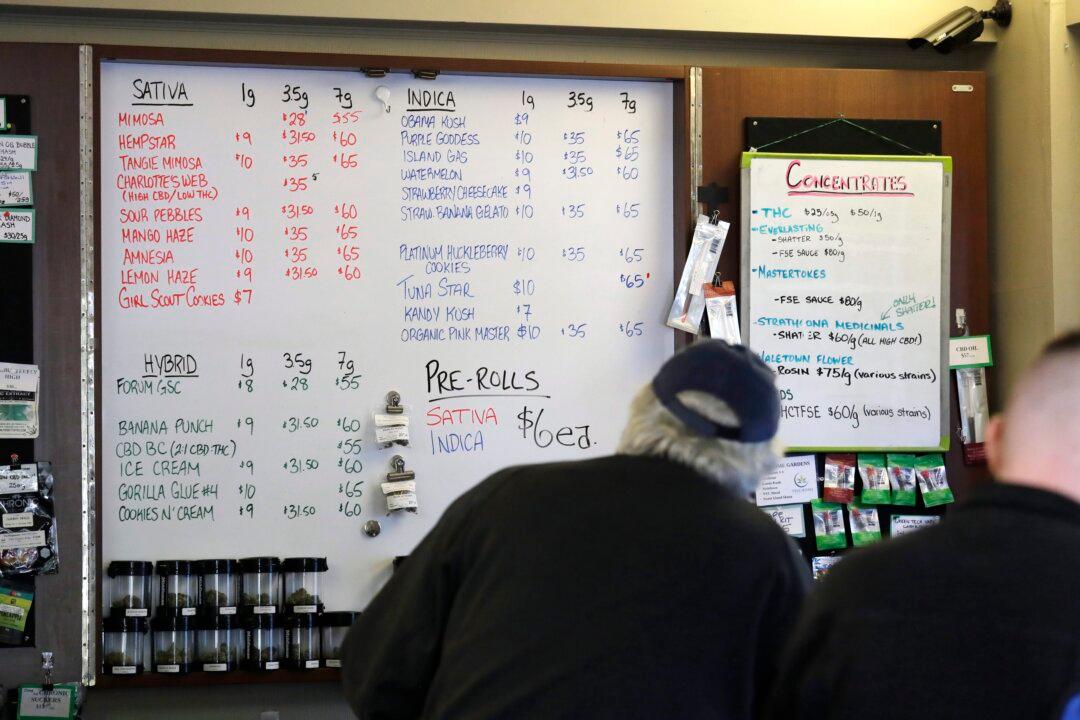 SATIVA 1g 3.5g 7g
MIMOSA $28 $55
HEMPSTAR $9 $31.50 $60
TANGIE MIMOSA $10 $35 $65
CHARLOTTE'S WEB $35
(HIGH CBD/LOW THC)
SOUR PEBBLES $9 $31.50 $60
MANGO HAZE $10 $35 $65
AMNESIA $10 $35 $65
LEMON HAZE $9 $31.50 $60
GIRL SCOUT COOKIES $7
HYBRID 1g 3.5g 7g
FORUM GSC $8 $28 $55
BANANA PUNCH $9 $31.50 $60
CBD BC (2:1 CBD:THC) $55
ICE CREAM $9 $31.50 $60
GORILLA GLUE #4 $10 $65
COOKIES N' CREAM $9 $31.50 $60
INDICA 1g 3.5g 7g
OBAMA KUSH $9
PURPLE GODDESS $10 $35 $65
ISLAND GAS $10 $35 $65
WATERMELON $9 $31.50 $60
STRAWBERRY CHEESECAKE $9
STRAW. BANANA GELATO $10 $35 $65
PLATINUM HUCKLEBERRY $10 $35 $65
COOKIES
TUNA STAR $10 $65
KANDY KUSH $7
ORGANIC PINK MASTER $10 $35 $65
PRE-ROLLS
SATIVA
INDICA
$6ea.
CONCENTRATES
- THC $25/.5g $50/1g
- EVERLASTING
- SHATTER $50/g
- FSE SAUCE $80/g
- MASTERTOKES
- FSE SAUCE $80/g
ONLY
SHATTER!
- STRATHCONA MEDICINALS
- SHATTER $60/g (ALL HIGH CBD!)
FLOWER
ROSIN $75/g (various strains)
HCTFSE $60/g (various strains)
CBD OIL